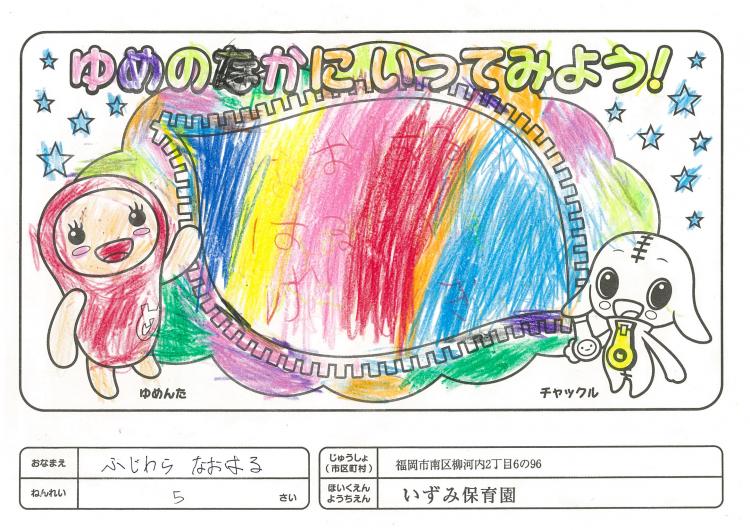 ゆめのなかにいってみよう！
ゆめんた
チャックル
おなまえ ふじわら なおはる
ねんれい 5 さい
じゅうしょ
（市区町村）
福岡市南区柳河内2丁目6の96
ほいくえん
ようちえん
いずみ保育園